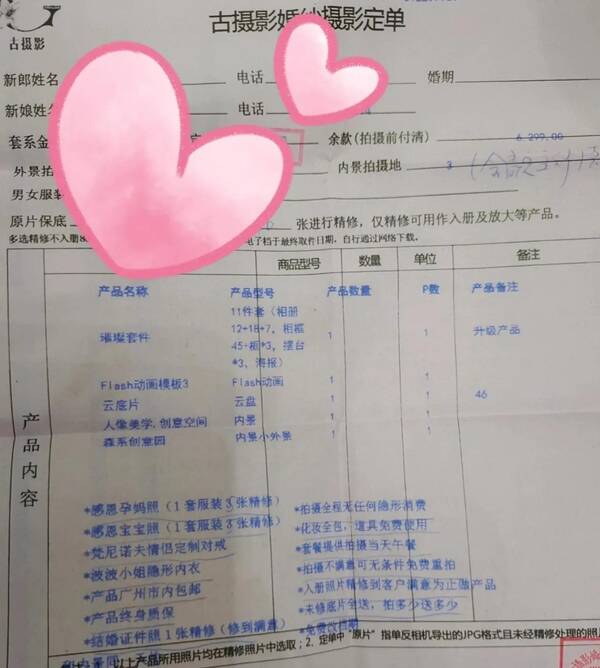 古摄影婚纱摄影定单
古摄影
新郎姓名 电话 婚期
新娘姓名 电话
套系金 余款(拍摄前付清) 6,299.00
外景拍 内景拍摄地 3
男女服装
原片保底 张进行精修，仅精修可用作入册及放大等产品。
多选精修不入册 电子档于最终取件日期，自行通过网络下载。
商品型号 数量 单位 备注
产品名称 产品型号 产品数量 P数 产品备注
璀璨套件 11件套（相册 1 1 升级产品
12+18+7，相框
*3，摆台
*3，海报）
Flash动画模板3 Flash动画 1 1
云底片 云盘 1 1 46
人像美学，创意空间 内景 1 1
森系创意园 内景小外景 1 1
产品内容
*感恩孕妈照（1套服装3张精修） *拍摄全程无任何隐形消费
*感恩宝宝照（1套服装3张精修） *化妆全包，道具免费使用
*梵尼诺夫情侣定制对戒 *套餐提供拍摄当天午餐
*波波小姐隐形内衣 *拍摄不满意可无条件免费重拍
*产品广州市内包邮 *入册照片精修到客户满意为止做产品
*产品终身质保 *未修底片全送，拍多少送多少
*结婚证件照1张精修（修到满意） *免费改档期
以上产品所用照片均在精修照片中选取；2、定单中“原片”指单反相机导出的JPG格式且未经精修处理的照